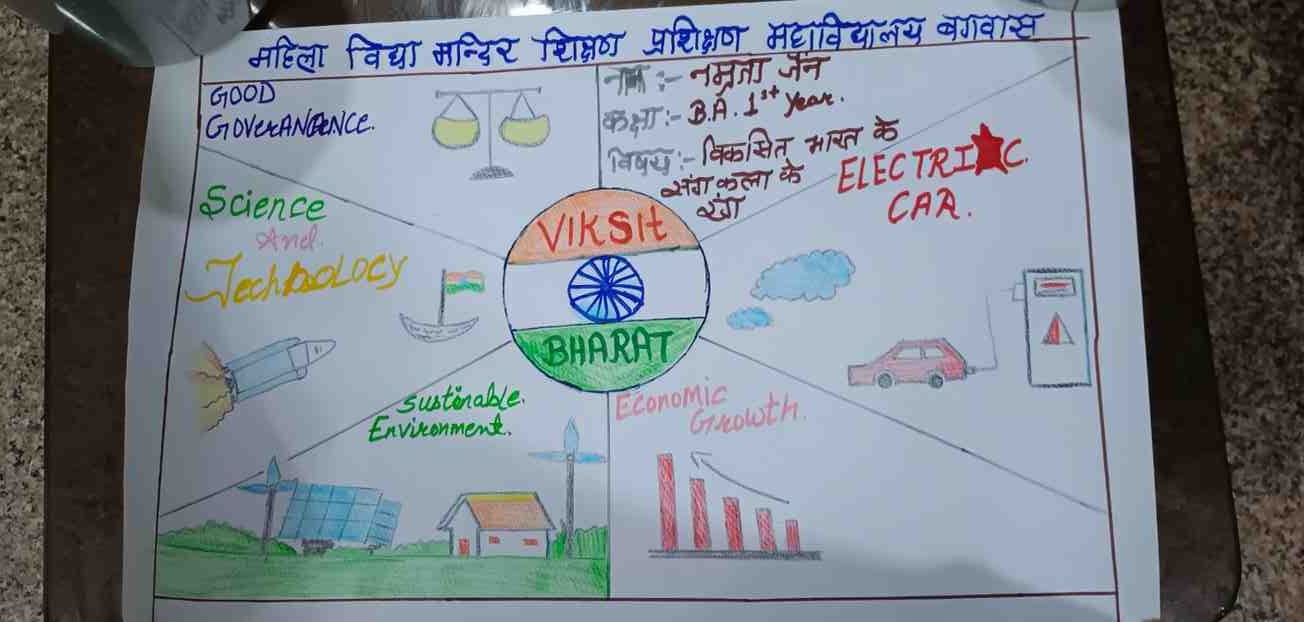 महिला विद्या मन्दिर शिक्षण प्रशिक्षण महाविद्यालय बगवास
GOOD
GOVERANENCE.
नाम :- नम्रता जैन
कक्षा :- B.A. 1st year.
विषय :- विकसित भारत के
संग कला के
रंग
ELECTRIC
CAR.
Science
And.
Technology
VIKSIt
BHARAT
Sustinable.
Environment.
Economic
Growth.